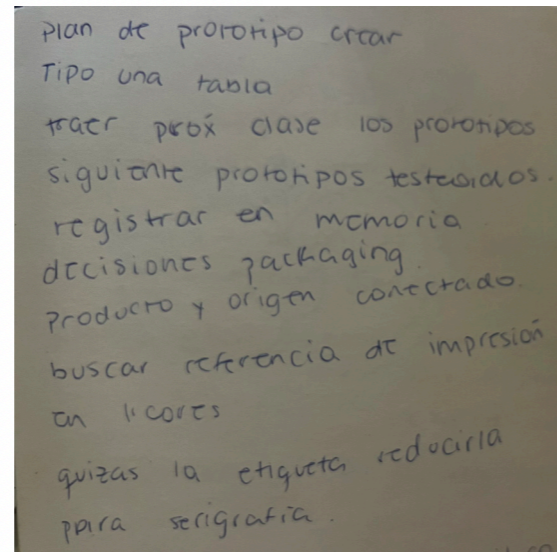 plan de prototipo crear
Tipo una tabla
traer prox clase los prototipos
siguiente prototipos testeados.
registrar en memoria
decisiones packaging
producto y origen conectado.
buscar referencia de impresión
en licores
quizas la etiqueta reducirla
para serigrafia.